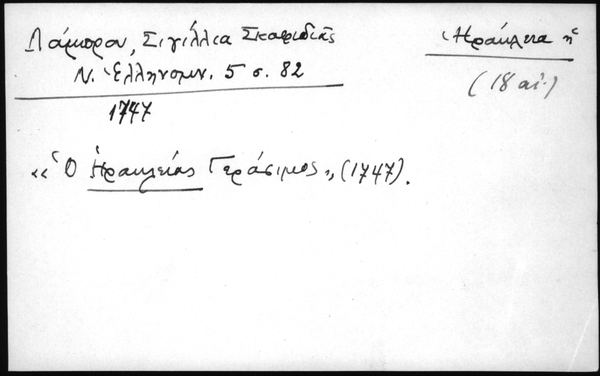 Λάμπρου, Σιγίλλια Σκαφιδιᾶς
Ν. Ἑλληνομν. 5 σ. 82
1747
Ἡράκλεια ἡ
(18 αἰ.)
«Ὁ Ἡρακλείας Γεράσιμος» (1747).